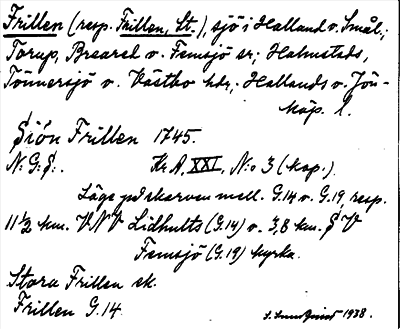 Frillen (resp. Frillen, St.), sjö i Halland o. Smål.;
Torup, Breared o. Femsjö sr; Halmstads,
Tönnersjö o. Västbo hdr; Hallands o. Jön-
köp. l.
Siön Frillen 1745.
N: G: S:. Kr. A. XXI, N:o 3 (kop.)
Läge på skarven mell. G.14 o. G.19, resp.
11½ km. VNV Lidhults (G.14) o. 3,8 km. SV
Femsjö (G.19) kyrka.
Stora Frillen ek.
Frillen G.14.
1938.